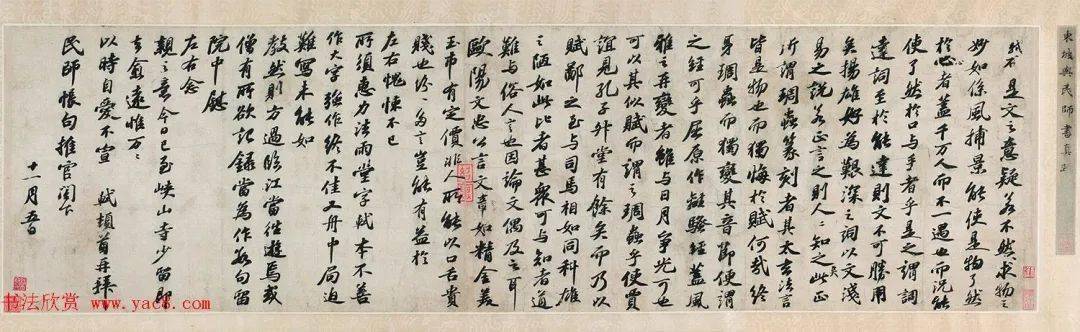 東坡與民師書真跡
軾不 是文之意疑若不然求物之
妙如係風捕景能使是物了然
於心者蓋千万人而不一遇也而況能
使了然於口與手者乎是之謂詞
達詞至於能達則文不可勝用
矣揚雄好為艱深之詞以文淺
易之說若正言之則人人知之矣此正
所謂琱蟲篆刻者其太玄法言
皆是物也而獨悔於賦何哉終
身琱蟲而獨變其音節便謂
之經可乎屈原作離騷經蓋風
雅之再變者雖與日月爭光可也
可以其似賦而謂之琱蟲乎使賈
誼見孔子升堂有餘矣而乃以
賦鄙之至與司馬相如同科雄
之陋如此比者甚衆可與知者道
難與俗人言也因論文偶及之耳
歐陽文忠公言文章如精金美
玉市有定價非人所能以口舌貴
賤也紛紛多言豈能有益於
左右愧悚不已
所須惠力法雨堂字軾本不善
作大字強作終不佳又舟中局迫
難寫未能如
教然則方過臨江當往遊焉或
僧有所欲記録當為作數句留
院中慰
左右念
親之意今日已至峽山寺少留即
去愈遠惟万万
以時自愛不宣 軾頓首再拜
民師帳句推官閣下
十一月五日
书法欣赏 www.yac8.com